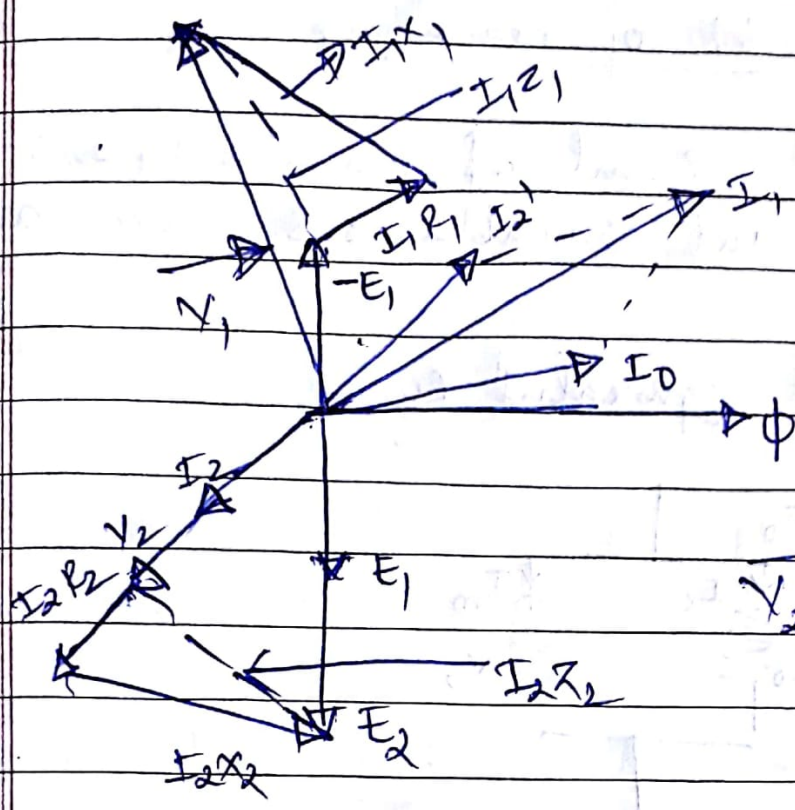 I₁X₁
I₁Z₁
I₁R₁
I₂'
I₁
-E₁
V₁
I₀
ϕ
I₂
V₂
I₂R₂
E₁
V₂
I₂Z₂
E₂
I₂X₂